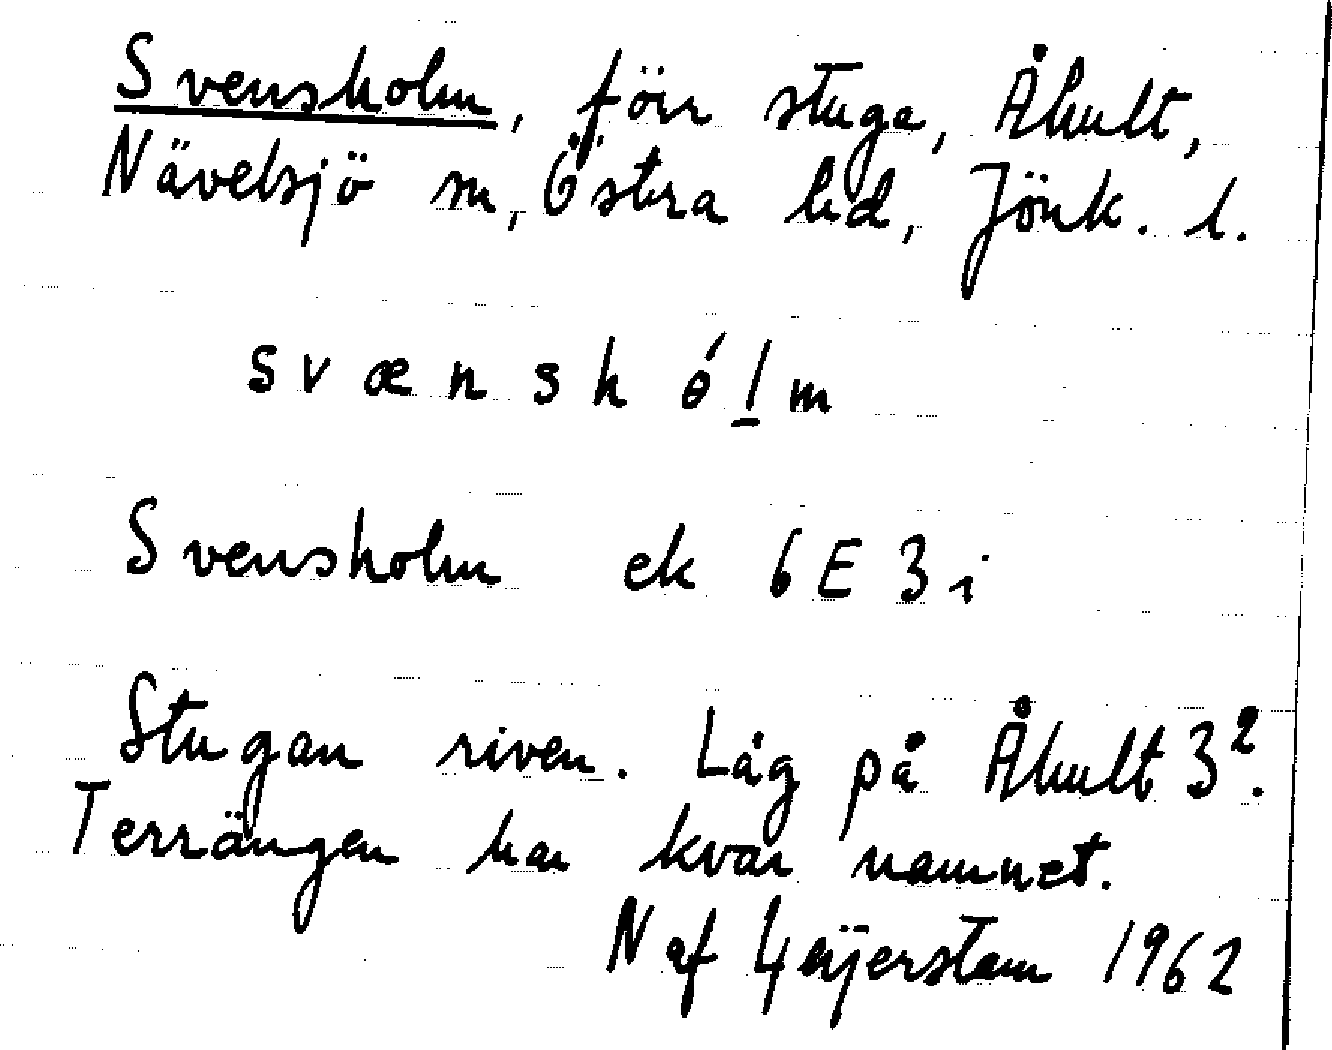 Svensholm, förr stuga, Åhult,
Nävelsjö sn, Östra hd, Jönk. l.
svænshɵ́l̲m
Svensholm ek 6E3i
Stugan riven. Låg på Åhult 3².
Terrängen har kvar namnet.
N af Geijerstam 1962